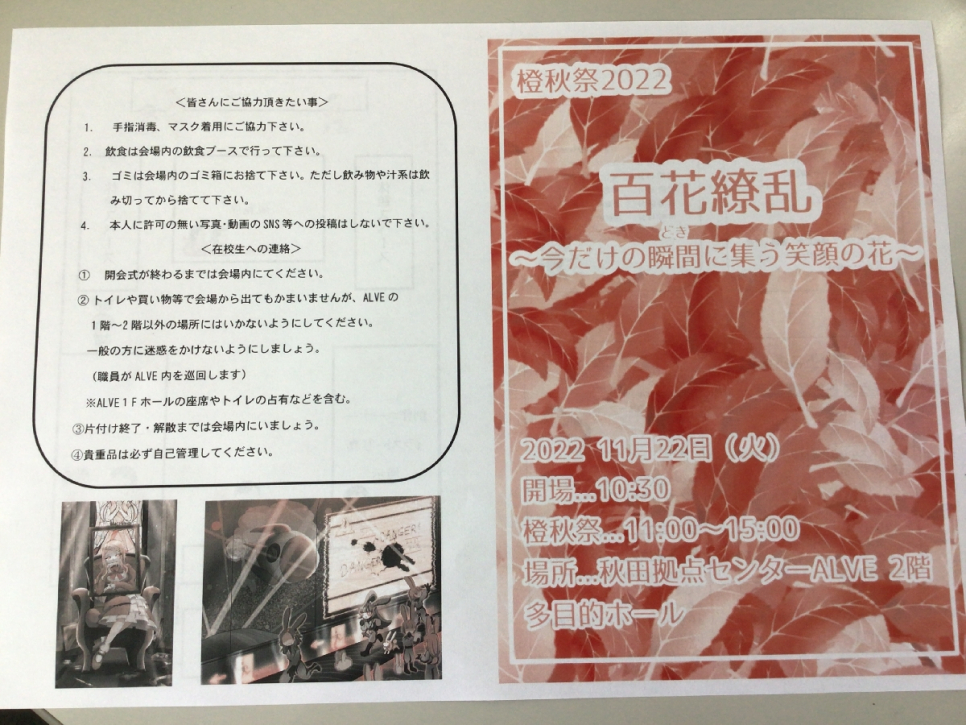 <皆さんにご協力頂きたい事>
1. 手指消毒、マスク着用にご協力下さい。
2. 飲食は会場内の飲食ブースで行って下さい。
3. ゴミは会場内のゴミ箱にお捨て下さい。ただし飲み物や汁系は飲
み切ってから捨てて下さい。
4. 本人に許可の無い写真・動画のSNS等への投稿はしないで下さい。
<在校生への連絡>
① 開会式が終わるまでは会場内にてください。
② トイレや買い物等で会場から出てもかまいませんが、ALVEの
1階～2階以外の場所にはいかないようにしてください。
一般の方に迷惑をかけないようにしましょう。
(職員がALVE内を巡回します)
※ALVE1Fホールの座席やトイレの占有などを含む。
③片付け終了・解散までは会場内にいましょう。
④貴重品は必ず自己管理してください。
DANGER!
橙秋祭2022
百花繚乱
どき
～今だけの瞬間に集う笑顔の花～
2022 11月22日(火)
開場…10:30
橙秋祭…11:00～15:00
場所…秋田拠点センターALVE 2階
多目的ホール